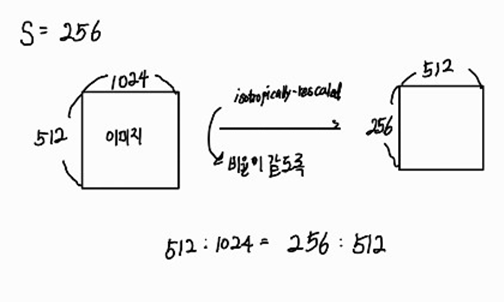 S = 256
1024
512
이미지
isotropically-rescaled
비율이 같도록
512
256
512 : 1024 = 256 : 512